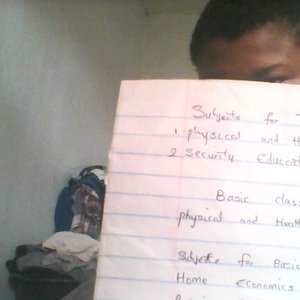 Subjects for
1 physical and
2 Security Educat
Basic clas
physical and Healt
Subjects for Basic
Home Economics